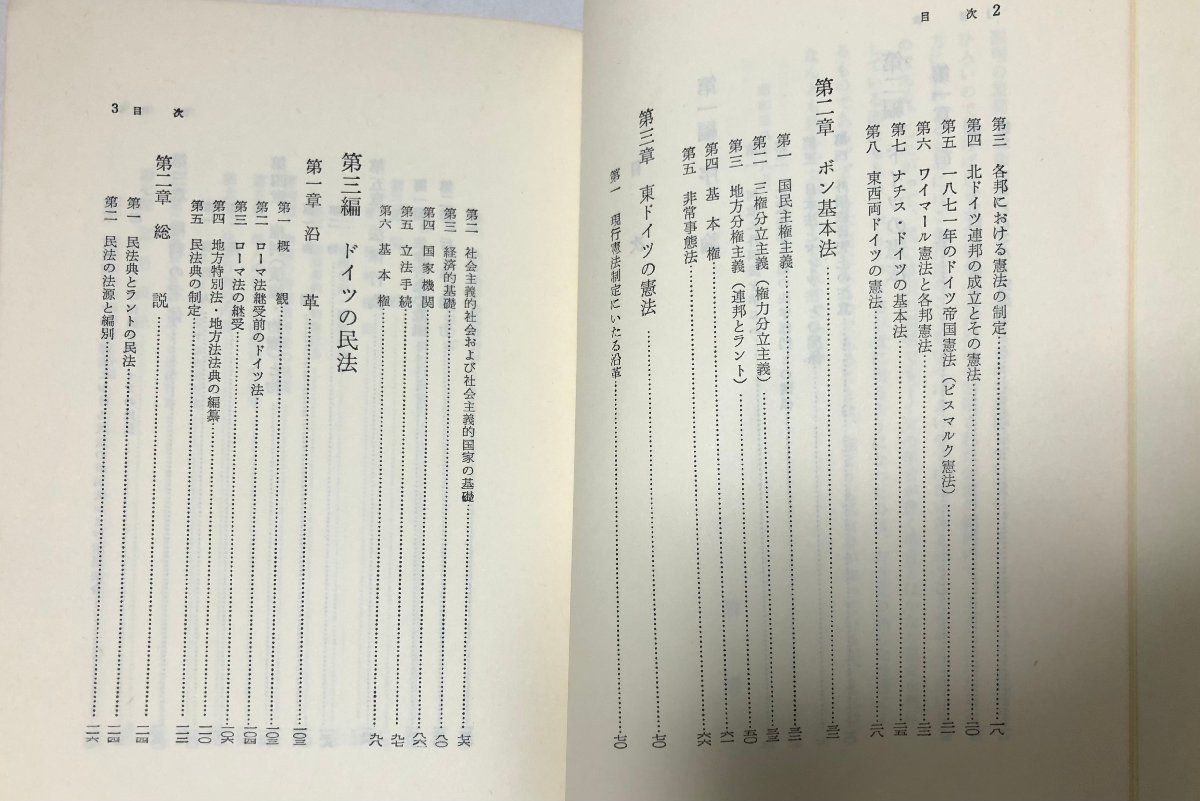 目次 2
第三 各邦における憲法の制定……一八
第四 北ドイツ連邦の成立とその憲法……二〇
第五 一八七一年のドイツ帝国憲法(ビスマルク憲法)……二一
第六 ワイマール憲法と各邦憲法……二三
第七 ナチス・ドイツの基本法……二五
第八 東西両ドイツの憲法……
第二章 ボン基本法……
第一 国民主権主義……
第二 三権分立主義(権力分立主義)……
第三 地方分権主義(連邦とラント)……五〇
第四 基本権……六一
第五 非常事態法……六六
第三章 東ドイツの憲法……七〇
第一 現行憲法制定にいたる沿革……七〇
第二 社会主義的社会および社会主義的国家の基礎……七六
第三 経済的基礎……八〇
第四 国家機関……八六
第五 立法手続……九七
第六 基本権……九八
第三編 ドイツの民法
第一章 沿革……一〇三
第一 概観……一〇三
第二 ローマ法継受前のドイツ法……一〇四
第三 ローマ法の継受……一〇六
第四 地方特別法・地方法法典の編纂……一一〇
第五 民法典の制定……
第二章 総説……一一四
第一 民法典とラントの民法……一一四
第二 民法の法源と編別……一一六
3 目次